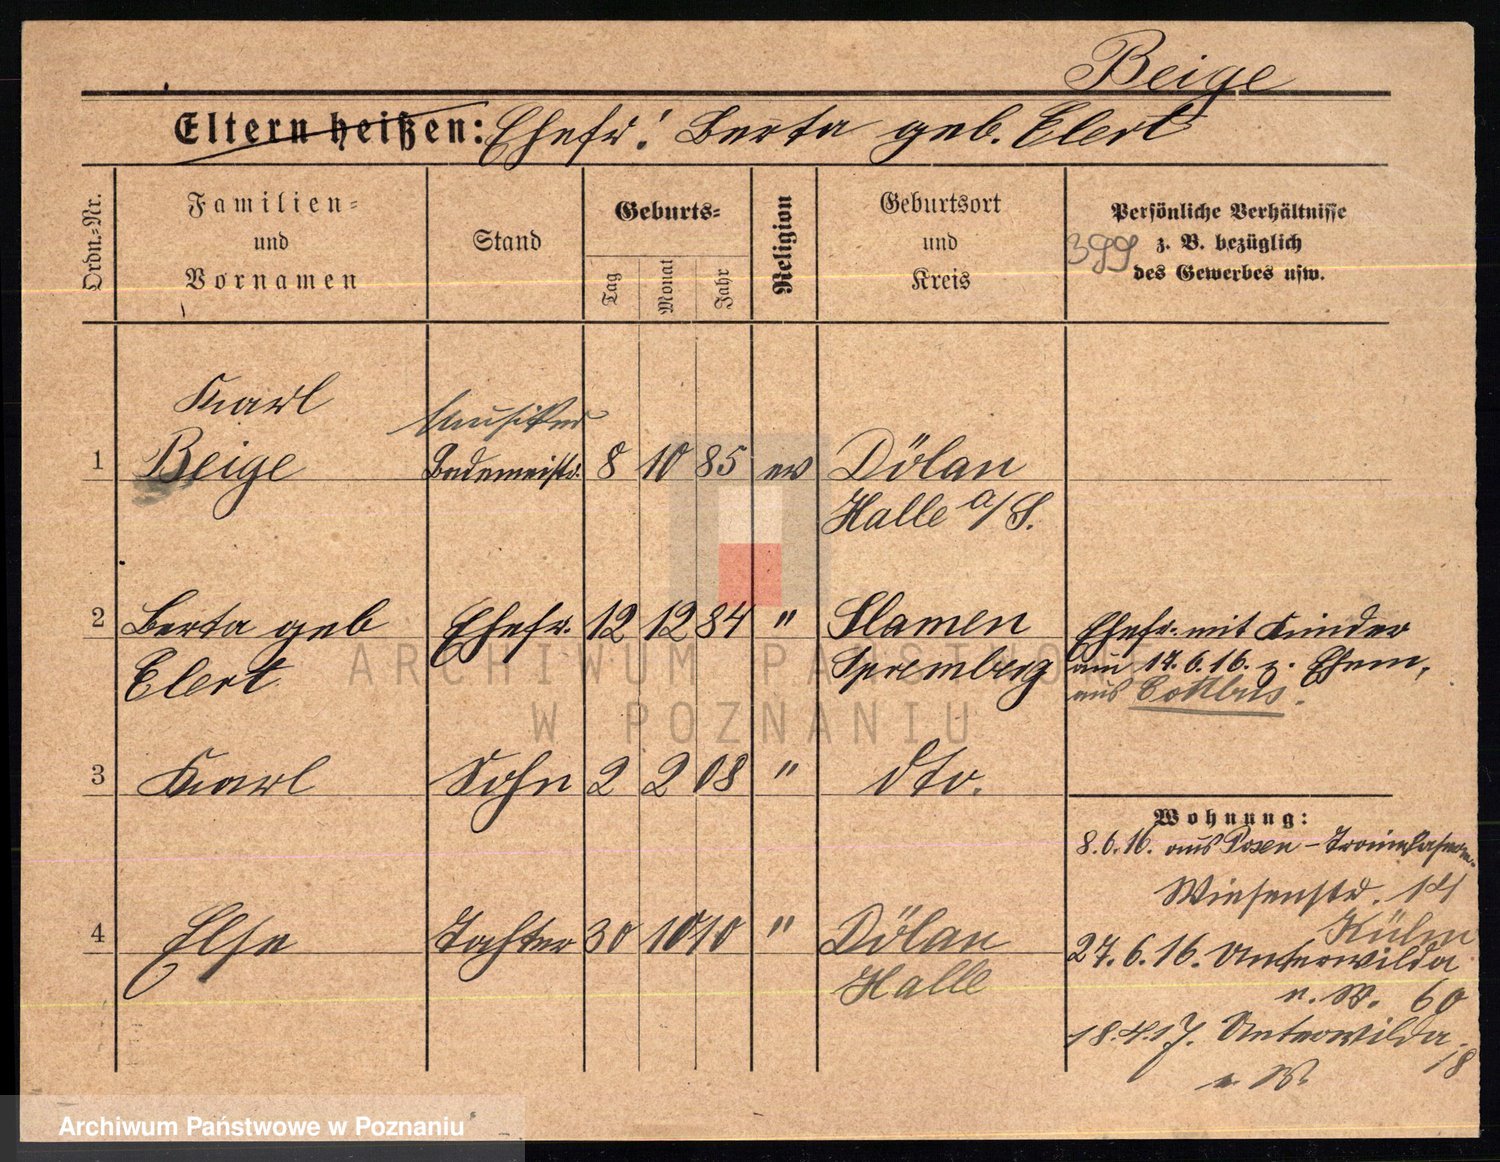 Beige
Eltern heißen: Ehefr: Berta geb. Elert
Ordn.-Nr.
Familien-
und
Vornamen
Stand
Geburts-
Tag
Monat
Jahr
Religion
Geburtsort
und
Kreis
Persönliche Verhältnisse
z. B. bezüglich
des Gewerbes usw.
399
Karl
Musiker
1 Beige Bademeistr. 8 10 85 ev Dölan
Halle a/S.
2 Berta geb Ehefr. 12 12 84 " Slamen
Elert Spremberg
Ehefr. mit Kinder
am 17.6.16. z. Ehem.
aus Cottbus.
3 Karl Sohn 2 2 08 " dto.
Wohnung:
8.6.16. aus Posen -
Wiesenstr. 14
Külm
4 Else Tochter 30 10 10 " Dölan
Halle
27.6.16. Unterwilda
n. W. 60
18.4.17. Unterwilda
18
n. W.
ARCHIWUM PAŃSTWOWE
W POZNANIU
Archiwum Państwowe w Poznaniu